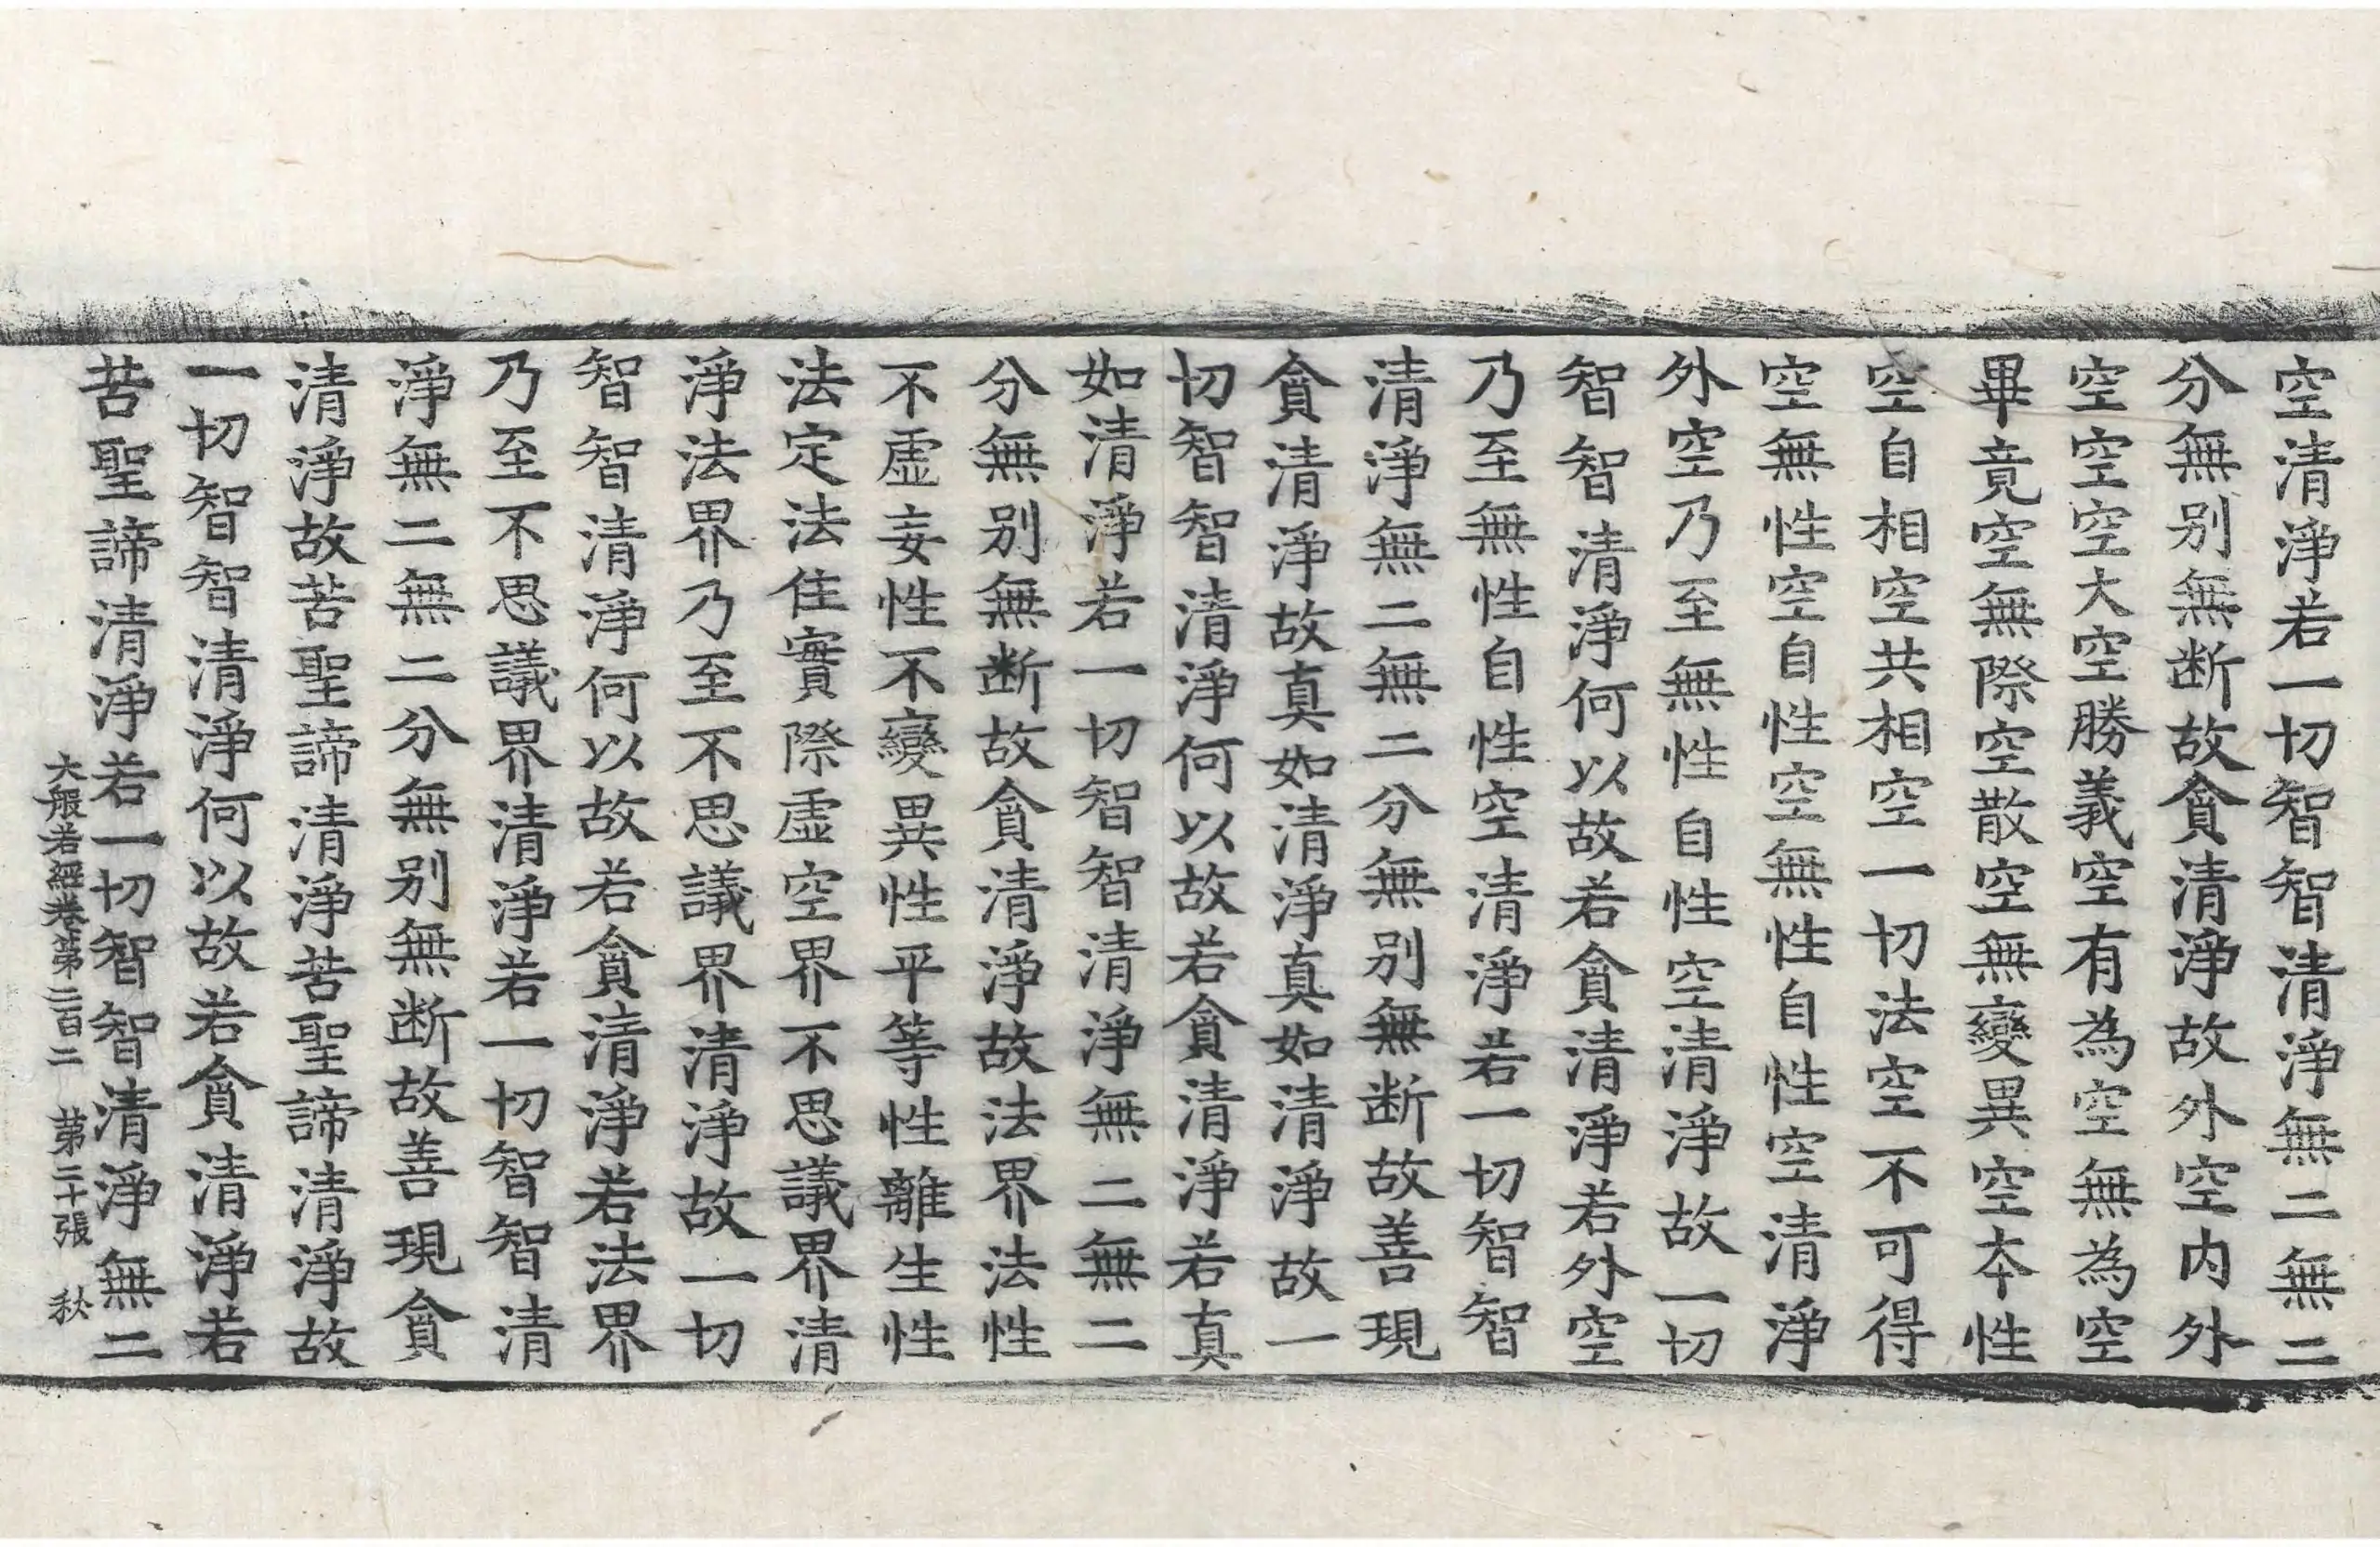 空清淨若一切智智清淨無二無二
分無別無断故貪清淨故外空内外
空空空大空勝義空有為空無為空
畢竟空無際空散空無變異空本性
空自相空共相空一切法空不可得
空無性空自性空無性自性空清淨
外空乃至無性自性空清淨故一切
智智清淨何以故若貪清淨若外空
乃至無性自性空清淨若一切智智
清淨無二無二分無別無断故善現
貪清淨故真如清淨真如清淨故一
切智智清淨何以故若貪清淨若真
如清淨若一切智智清淨無二無二
分無別無断故貪清淨故法界法性
不虛妄性不變異性平等性離生性
法定法住實際虛空界不思議界清
淨法界乃至不思議界清淨故一切
智智清淨何以故若貪清淨若法界
乃至不思議界清淨若一切智智清
淨無二無二分無別無断故善現貪
清淨故苦聖諦清淨苦聖諦清淨故
一切智智清淨何以故若貪清淨若
苦聖諦清淨若一切智智清淨無二
大般若經卷第二百二 第二十張 秋